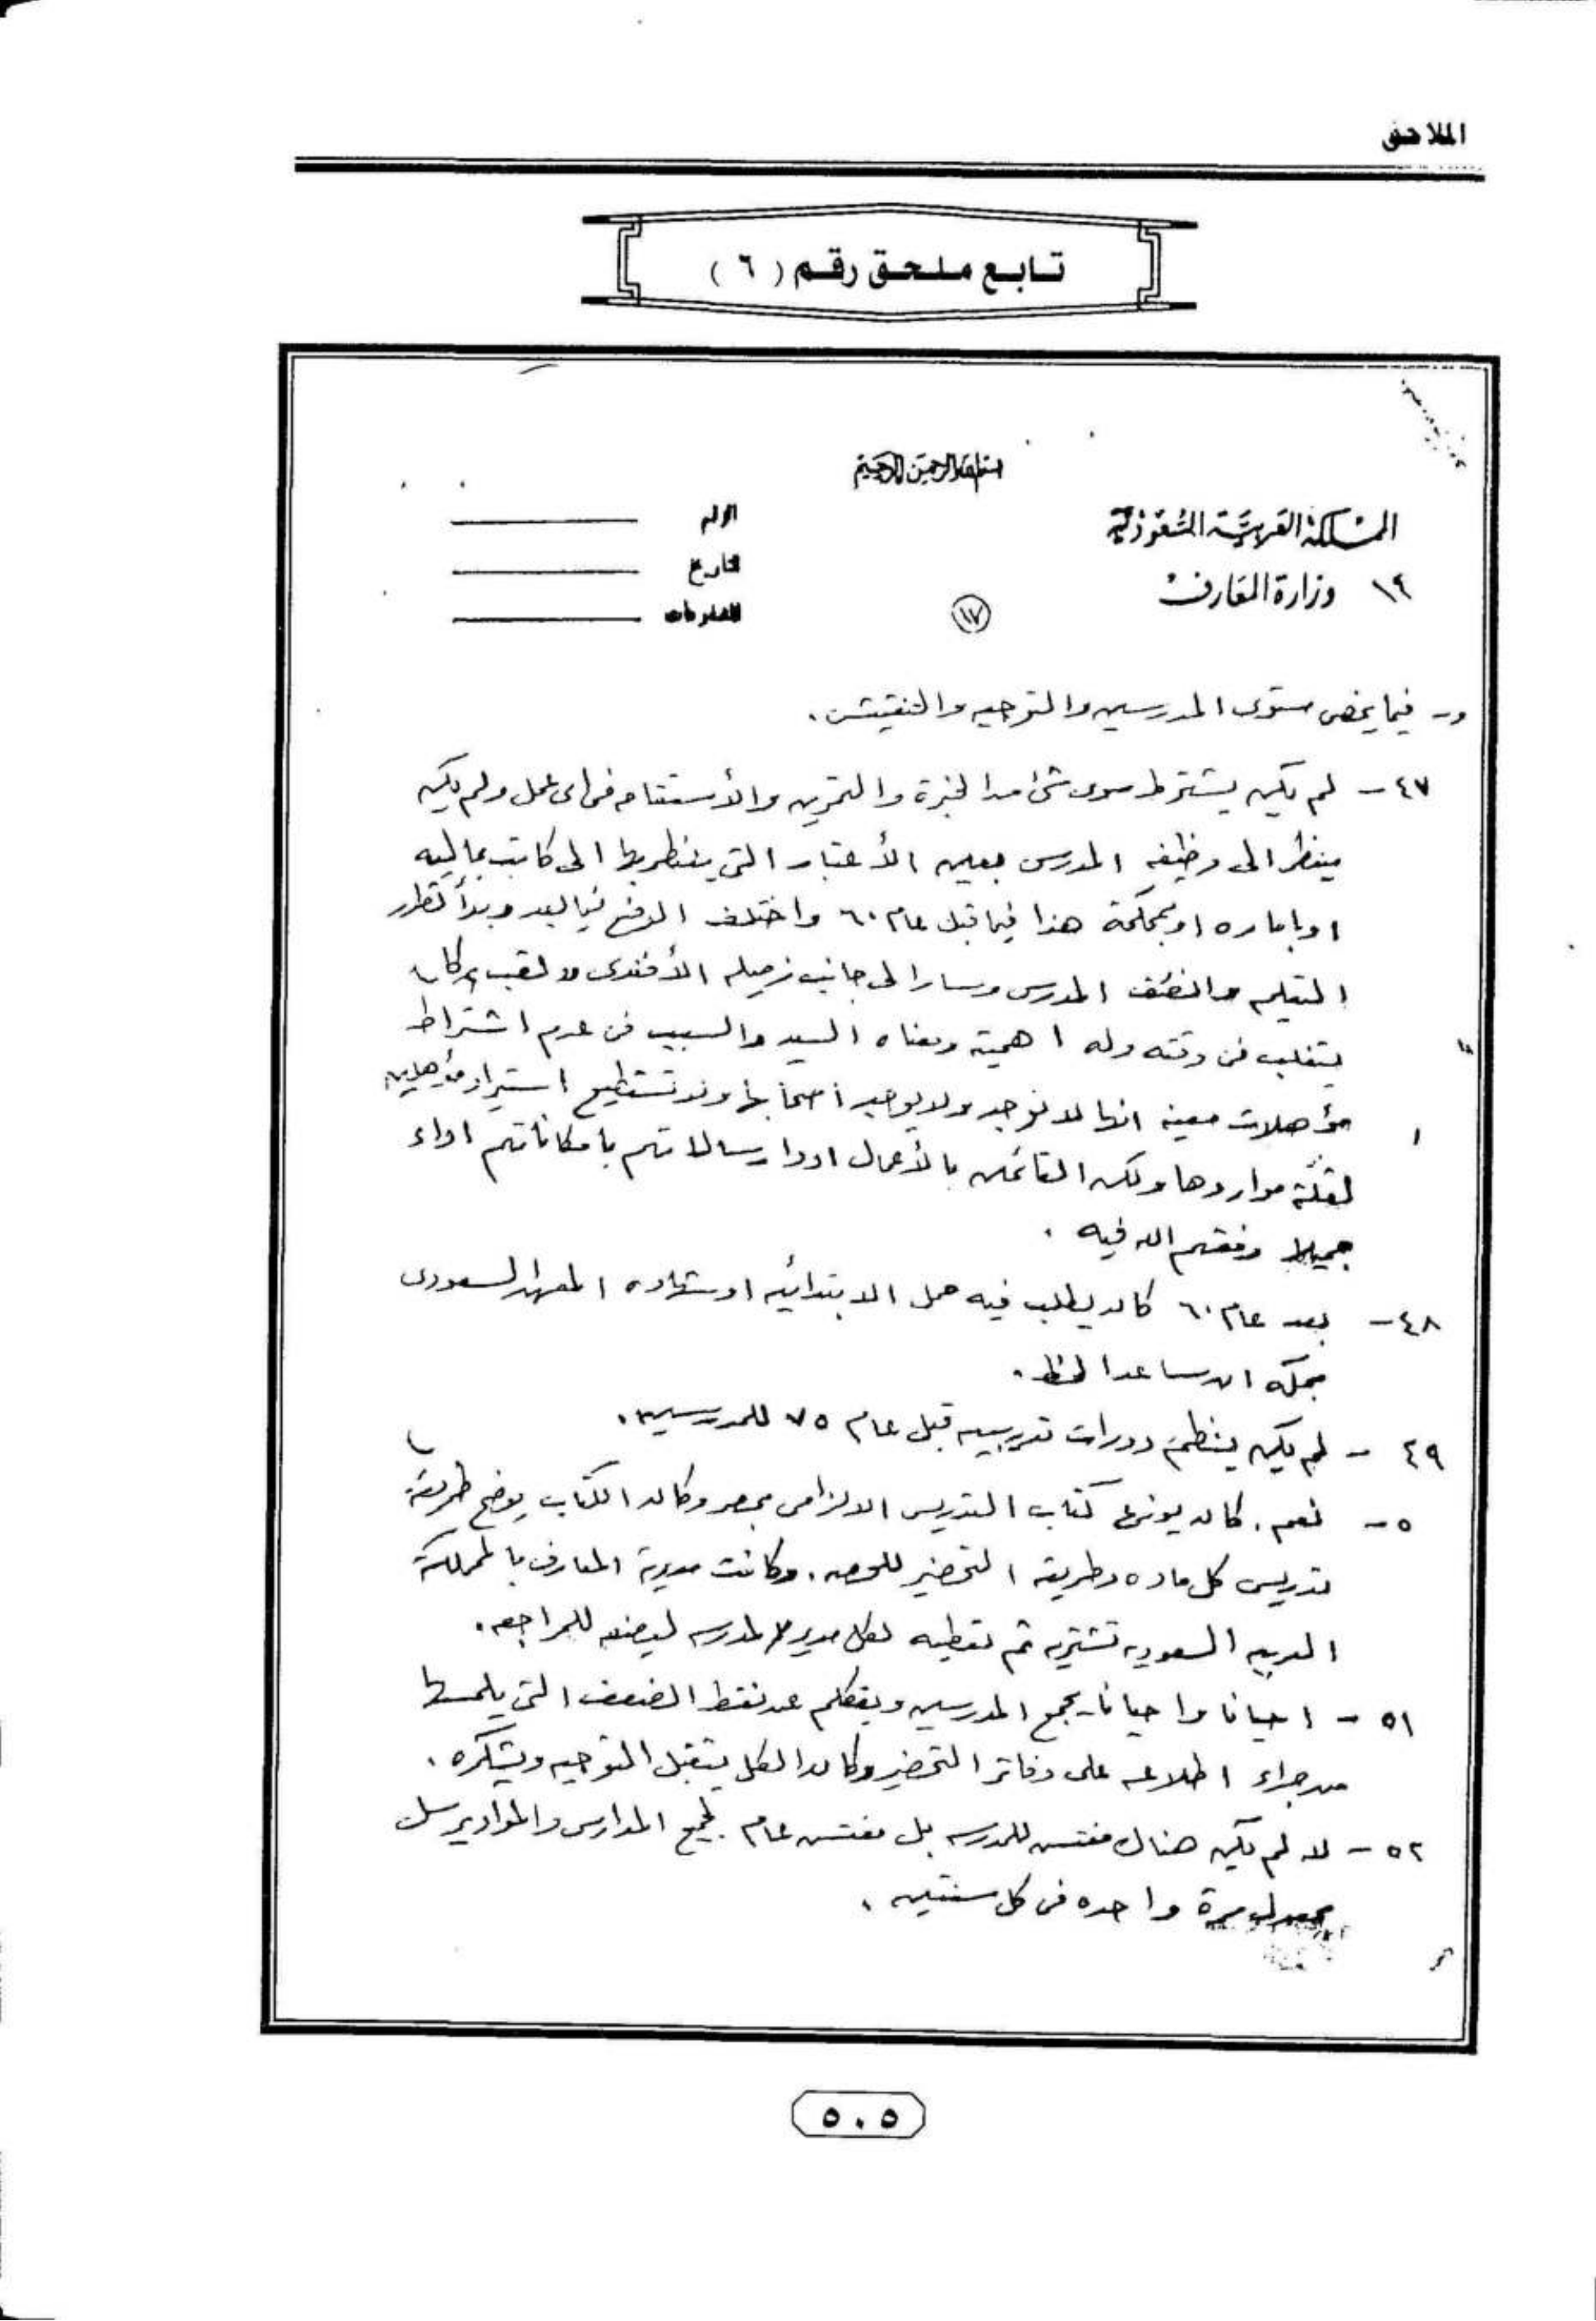 الملاحق
تابع ملحق رقم ( ٦ )
بسم الله الرحمن الرحيم
المملكة العربية السعودية
وزارة المعارف
١٩
الرقم
التاريخ
المشفوعات
١٧
و- فيما يخص مستوى المدرسين والتوجيه والتفتيش .
٤٧ - لم يكن يشترط سوى شئ من الخبرة والتمرين والأستقامه فى اى عمل ولم يكن
ينظر الى وظيفه المدرس بعين الأعتبار التى ينظر بها الى كاتب بماليه
او باماره او بمحكمة هذا فيما قبل عام ٦٠ واختلف الوضع فيما بعد وبدأ تطور
التعليم المدرس وسار الى جانب زميله الأفندى ولقب كان
يتغلب فى وقته وله اهمية ومعناه السيد والسبب فى عدم اشتراط
مؤهلات معينه انها لا توجد ولا يوجد اصحابها ولا تستطيع استيراد مؤهلين
لقلة مواردها ولكن القائمين بالأعمال ادوا رسالاتهم بامكاناتهم اداء
جميلا وفقهم الله فيه .
٤٨ - بعد عام ٦٠ كان يطلب فيه حمل الابتدائيه او شهاده المعهد السعودى
بمكه ان ساعد الحظ .
٤٩ - لم يكن ينظم دورات تدريبيه قبل عام ٧٥ للمدرسين .
٥- نعم . كان يوزع كتاب التدريس الالزامى بمصر وكان الكتاب يوضح طريقة
تدريس كل ماده وطريقه التحضير للحصه . وكانت مديرية المعارف بالمملكة
العربيه السعوديه تشتريه ثم تعطيه لكل مدير المدرسه ليضعه للمراجعه .
٥١ - احيانا واحيانا يجمع المدرسين ويتكلم عن نقط الضعف التى يلمسها
من جراء اطلاعه على دفاتر التحضير وكان الكل يتقبل التوجيه ويشكره .
٥٢ - لا لم يكن هناك مفتش للمدرسه بل مفتش عام لجميع المدارس والمواد يرسل
بمعدل مرة واحده فى كل سنتين .
٥٠٥